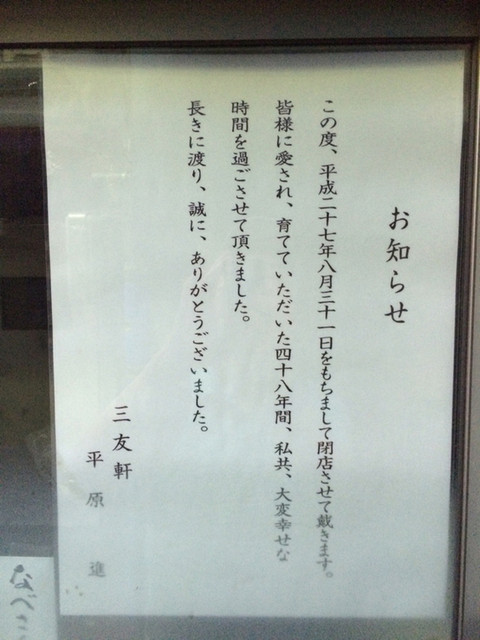 お知らせ
この度、平成二十七年八月三十一日をもちまして閉店させて戴きます。
皆様に愛され、育てていただいた四十八年間、私共、大変幸せな
時間を過ごさせて頂きました。
長きに渡り、誠に、ありがとうございました。
三友軒
平原 進
なべ